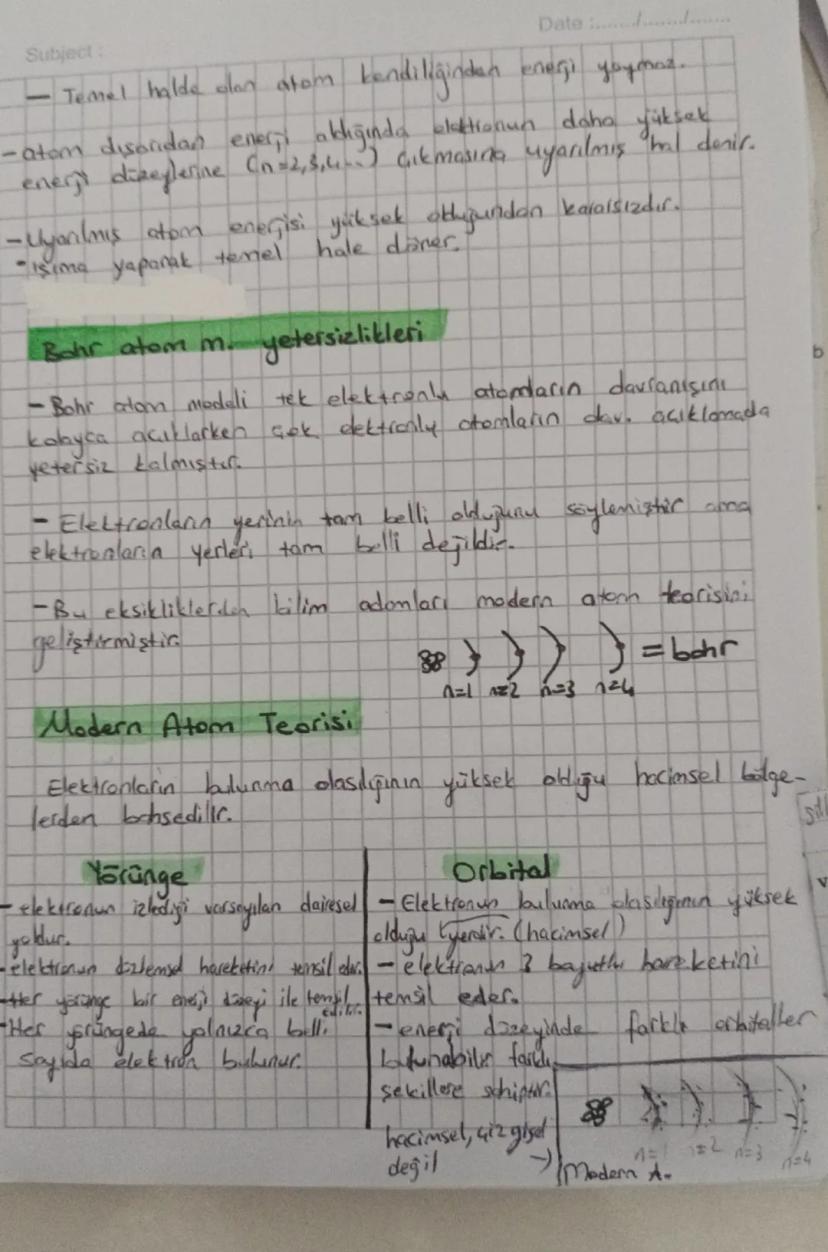 Date :....../......./.......
Subject :
- Temel halde olan atom kendiliğinden enerji yaymaz.
- atom dışarıdan enerji aldığında elektronun daha yüksek
enerji düzeylerine (n=2,3,4...) çıkmasına uyarılmış hal denir.
- Uyarılmış atom enerjisi yüksek olduğundan kararsızdır.
- ışıma yaparak temel hale döner.
Bohr atom m. yetersizlikleri
- Bohr atom modeli tek elektronlu atomların davranışını
kolayca açıklarken çok elektronlu atomların dav. açıklamada
yetersiz kalmıştır.
- Elektronların yerinin tam belli olduğunu söylemiştir ama
elektronların yerleri tam belli değildir.
- Bu eksikliklerden bilim adamları modern atom teorisini
geliştirmiştir.
= bohr
n=1 n=2 n=3 n=4
Modern Atom Teorisi
Elektronların bulunma olasılığının yüksek olduğu hacimsel bölge-
lerden bahsedilir.
Yörünge
- elektronun izlediği varsayılan dairesel
yoldur.
- elektronun düzlemsel hareketini temsil eder.
- Her yörünge bir enerji düzeyi ile temsil
edilir.
- Her yörüngede yalnızca belli
sayıda elektron bulunur.
Orbital
- Elektronun bulunma olasılığının yüksek
olduğu yerdir. (hacimsel)
- elektronun 3 boyutlu hareketini
temsil eder.
- enerji düzeyinde farklı orbitaller
bulunabilir farklı
şekillere sahiptir.
hacimsel, çizgisel
değil
n=1 n=2 n=3 n=4
Modern A.